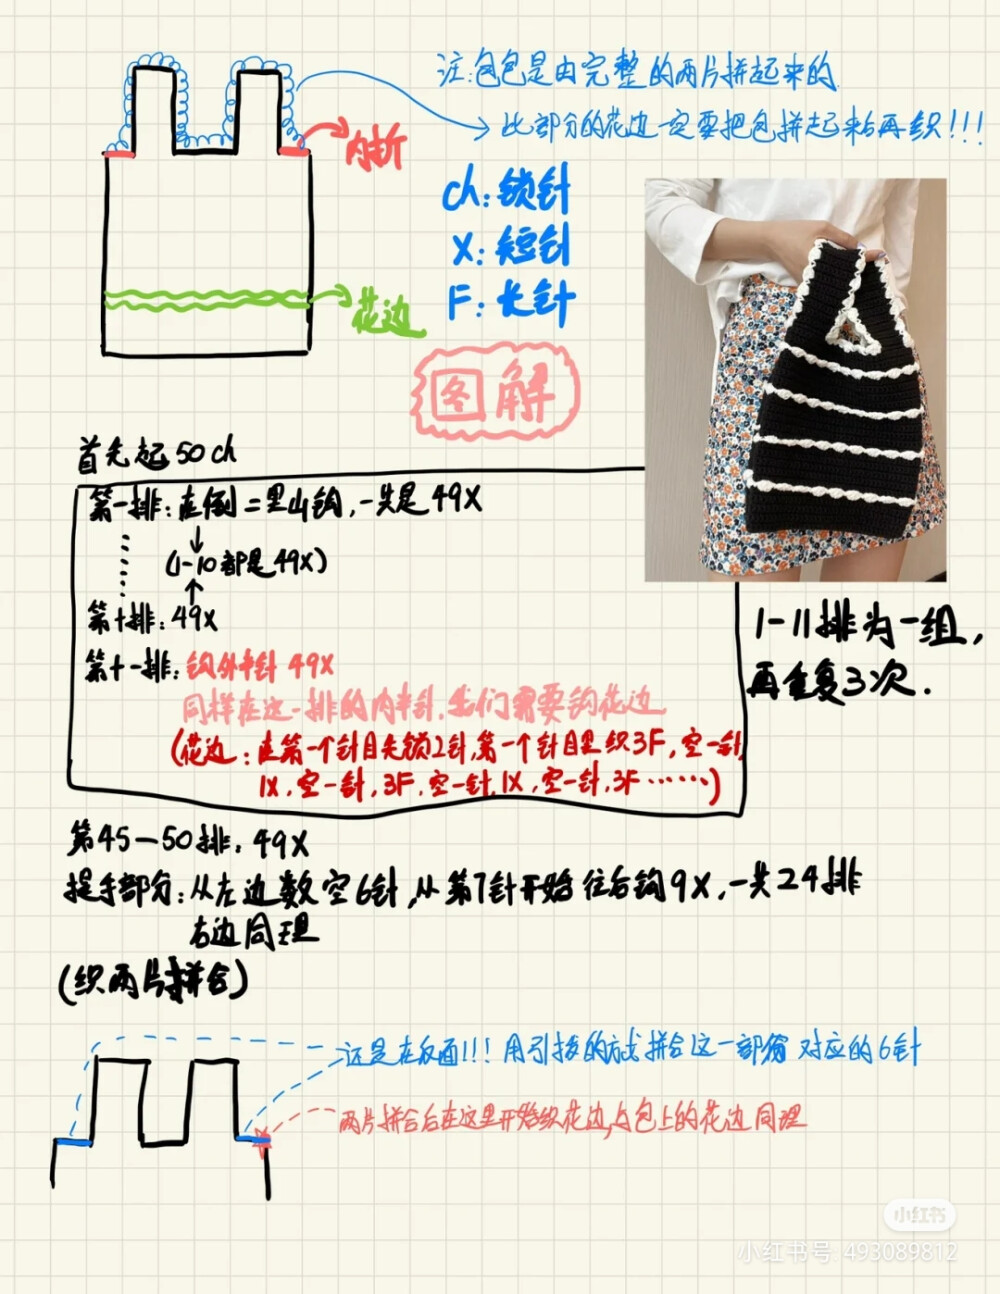 注:包包是由完整的两片拼起来的
此部分的花边一定要把包拼起来后再织!!!
内折
ch:锁针
X:短针
F:长针
花边
图解
首先起50ch
第一排:在倒=里山钩,一共是49X
(1-10都是49X)
第十排:49X
第十一排:钩外半针 49X
同样在这一排的内半针,我们需要钩花边
(花边:在第一个针目先锁2针,第一个针目里织3F,空一针,
1X,空一针,3F,空一针,1X,空一针,3F……)
1-11排为一组,
再重复3次.
第45-50排,49X
提手部分:从左边数空6针,从第7针开始往后钩9X,一共24排
右边同理
(织两片拼合)
还是在反面!!!用引拔的方式拼合这一部分 对应的6针
两片拼合后在这里开始织花边,与包上的花边同理
小红书
小红书号:493089812